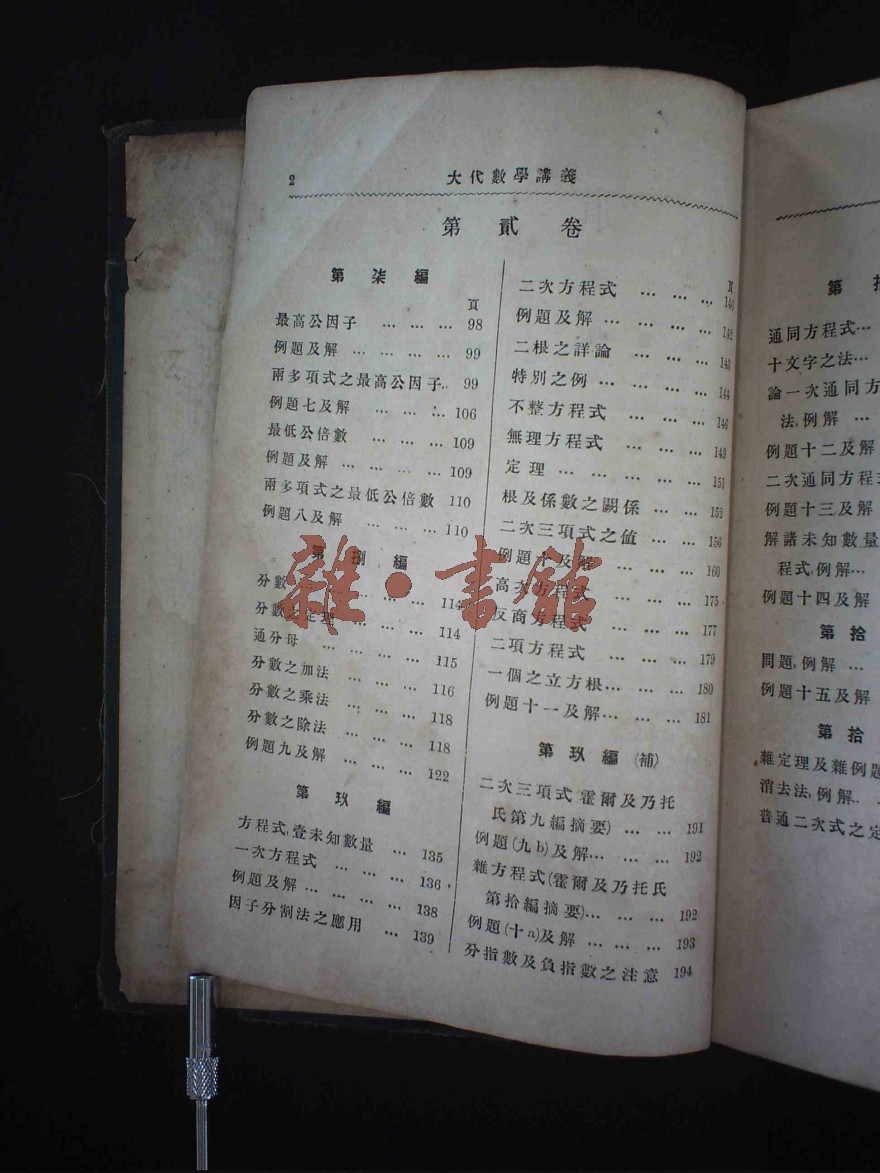 2
大代數學講義
第貳卷
第柒編
頁
最高公因子 … … … 98
例題及解 … … … … 99
兩多項式之最高公因子.. 99
例題七及解 … … … … 106
最低公倍數 … … … 109
例題及解 … … … … 109
兩多項式之最低公倍數 110
例題八及解 … … … 110
第捌編
分數 … … … … … 114
分數之定理 … … … 114
通分母 … … … … 115
分數之加法 … … … 116
分數之乘法 … … … 118
分數之除法 … … … 118
例題九及解 … … … 122
第玖編
方程式,壹未知數量 … 135
一次方程式 … … … 136
例題及解 … … … … 138
因子分割法之應用 … 139
頁
二次方程式 … … … 140
例題及解 … … … … 142
二根之詳論 … … … 143
特別之例 … … … … 144
不整方程式 … … … 146
無理方程式 … … … 149
定理 … … … … … 151
根及係數之關係 … … 152
二次三項式之值 … … 156
例題十及解 … … … 160
高次方程式 … … … 175
反商方程式 … … … 177
二項方程式 … … … 179
一個之立方根… … … 180
例題十一及解… … … 181
第玖編(補)
二次三項式 霍爾及乃托
氏第九編摘要) … … 191
例題(九b)及解… … … 192
雜方程式(霍爾及乃托氏
第拾編摘要)… … … 192
例題(十a)及解 … … … 193
分指數及負指數之注意 194
第
通同方程式…
十文字之法…
論一次通同方
法,例解 …
例題十二及解
二次通同方程
例題十三及解
解諸未知數量
程式,例解…
例題十四及解
第拾
問題,例解 …
例題十五及解
第拾
雜定理及雜例題
消去法,例解..
普通二次式之定
雜·書館